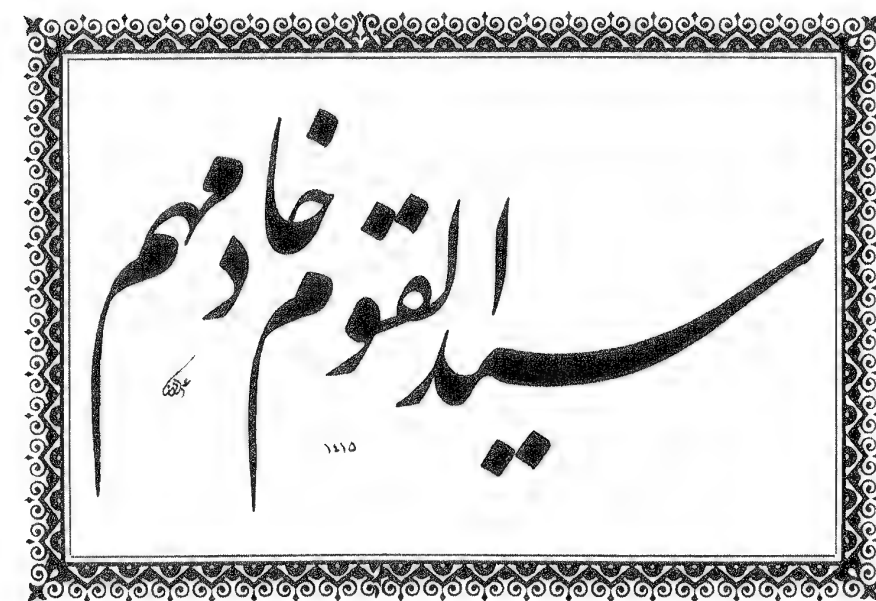 سيد القوم خادمهم
١٤١٥